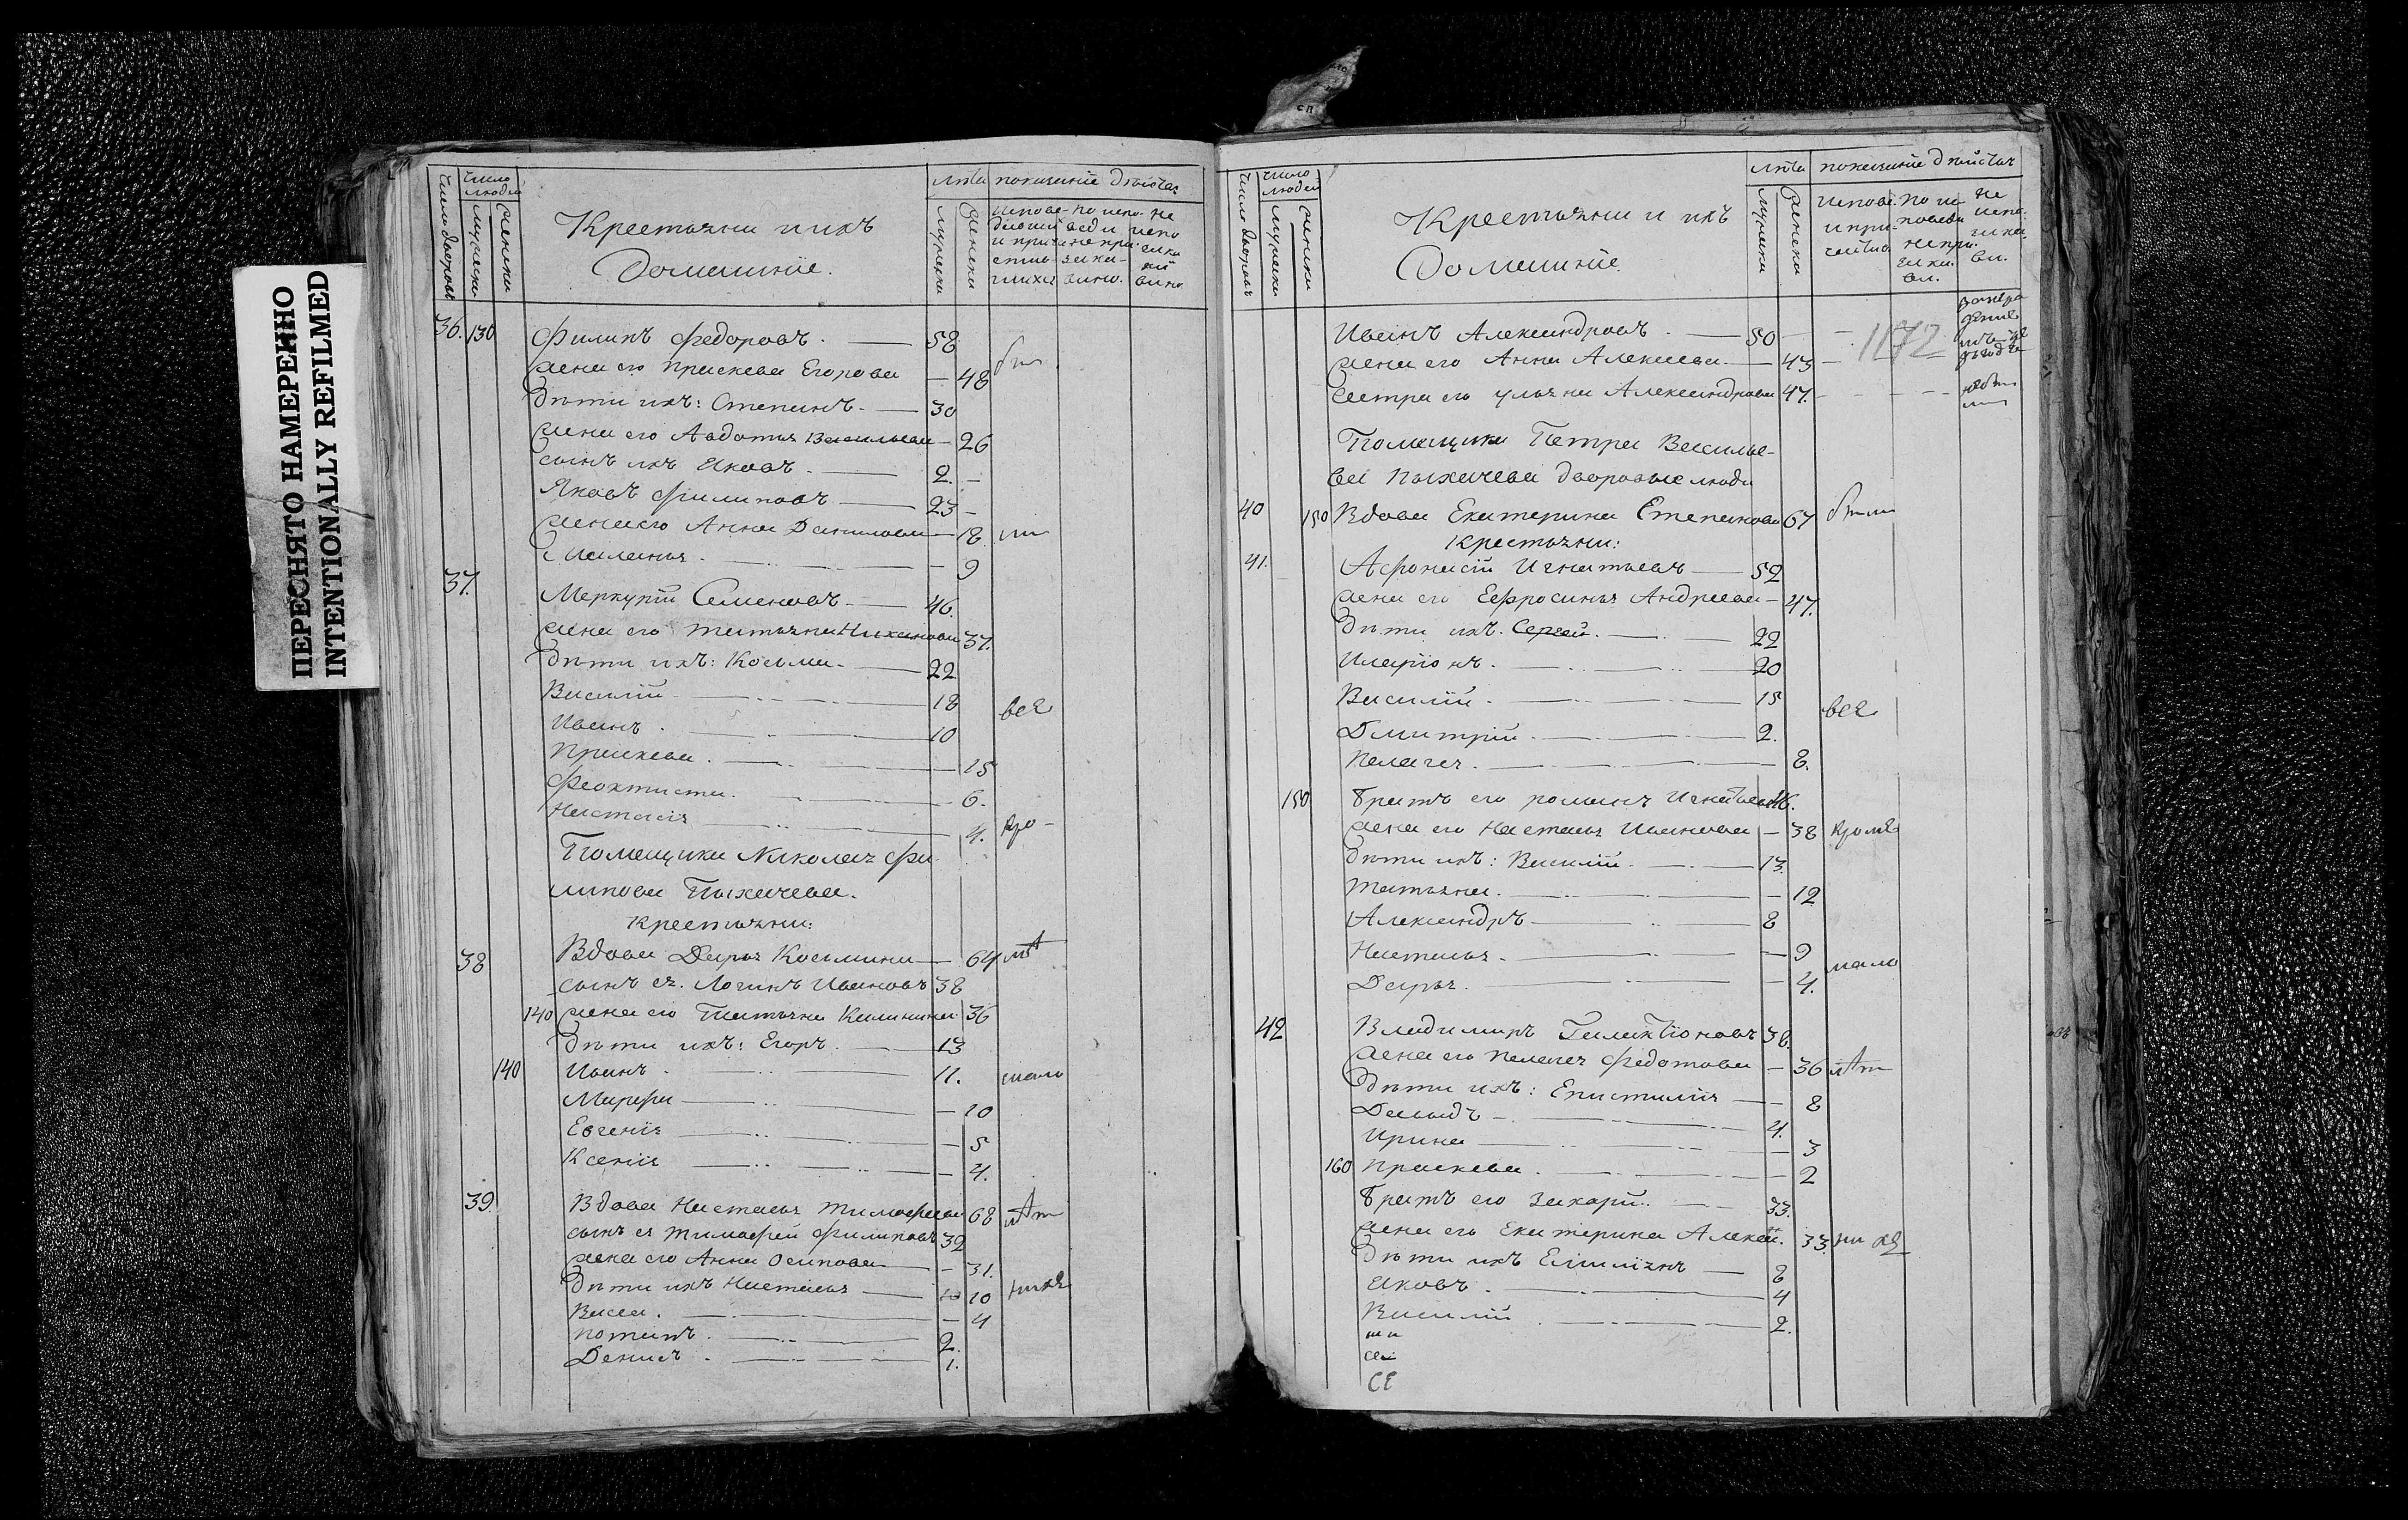 ПЕРЕСНЯТО НАМЕРЕННО
INTENTIONALLY REFILMED
Число дворовъ
Число людей
Мужеска
Женска
Крестьяни и ихъ
Домашніе.
Лѣта
Мужеска
Женска
показаніе дѣйства
36. 130 Филипъ Федоровъ. 58
жена его Праскева Егорова 48
дѣти ихъ: Степанъ. 30
жена его Авдотья Васильева 26
сынъ ихъ Яковъ. 2.
Яковъ Филиповъ 23
жена его Анна Данилова 18
Маланья. 9
37. Меркурій Семеновъ 46.
жена его Татьяна 37.
дѣти ихъ: Косьма. 22
Василій 18
Иванъ. 10
все
Праскева. 15
Феоктиста. 6.
Настасія 4. кро-
Помещика Николая Фи
липова Пыхачева.
Крестьяни:
38 Вдова Дарья Косьмина 64
сынъ ея. Логинъ Ивановъ 38
140 жена его Татьяна Калинина 36
дѣти ихъ: Егоръ. 13
140 Иванъ. 11. мало
Марфа 10
Евгенія 5
Ксенія 4.
39. Вдова Настасья Тимофеева 68 лѣт
сынъ ея Тимофей Филиповъ 32
жена его Анна Осипова 31.
дѣти ихъ Настасья 10 10
Васса. 4
Потапъ. 2.
Денисъ. 1.
Число дворовъ
Число людей
Мужеска
Женска
Крестьяни и ихъ
Домашніе.
Лѣта
Мужеска
Женска
показаніе дѣйства
Иванъ Александровъ. 50
1172
жена его Анна Алексеева 43
сестра его Ульяна Александрова 47.
Помещика Петра Василье-
ва Пыхачева дворовые люди
40 150 Вдова Екатерина Степанова 67
Крестьяни:
41. Афонасій Игнатьевъ 52
жена его Ефросинья Андреева 47.
дѣти ихъ. Сергей. 22
Иларіонъ. 20
Василій. 15
все
Дмитрій. 2.
Пелагея. 8.
150 братъ его Романъ Игнатьевъ 46.
жена его Настасья Иванова 38 кроме
дѣти ихъ: Василій. 13.
Татьяна. 12
Александръ 8
Настасья. 9
мало
Дарья. 4.
42 Владимиръ Галактіоновъ 38.
жена его Пелагея Федотова 36 лѣт
дѣти ихъ: Епистимія 8
Давыдъ 4.
Ирина 3
160 Праскева. 2
братъ его Захарій. 33.
жена его Екатерина Алексе. 33.
дѣти ихъ Емиліянъ 8
Яковъ. 4
Василій 2.